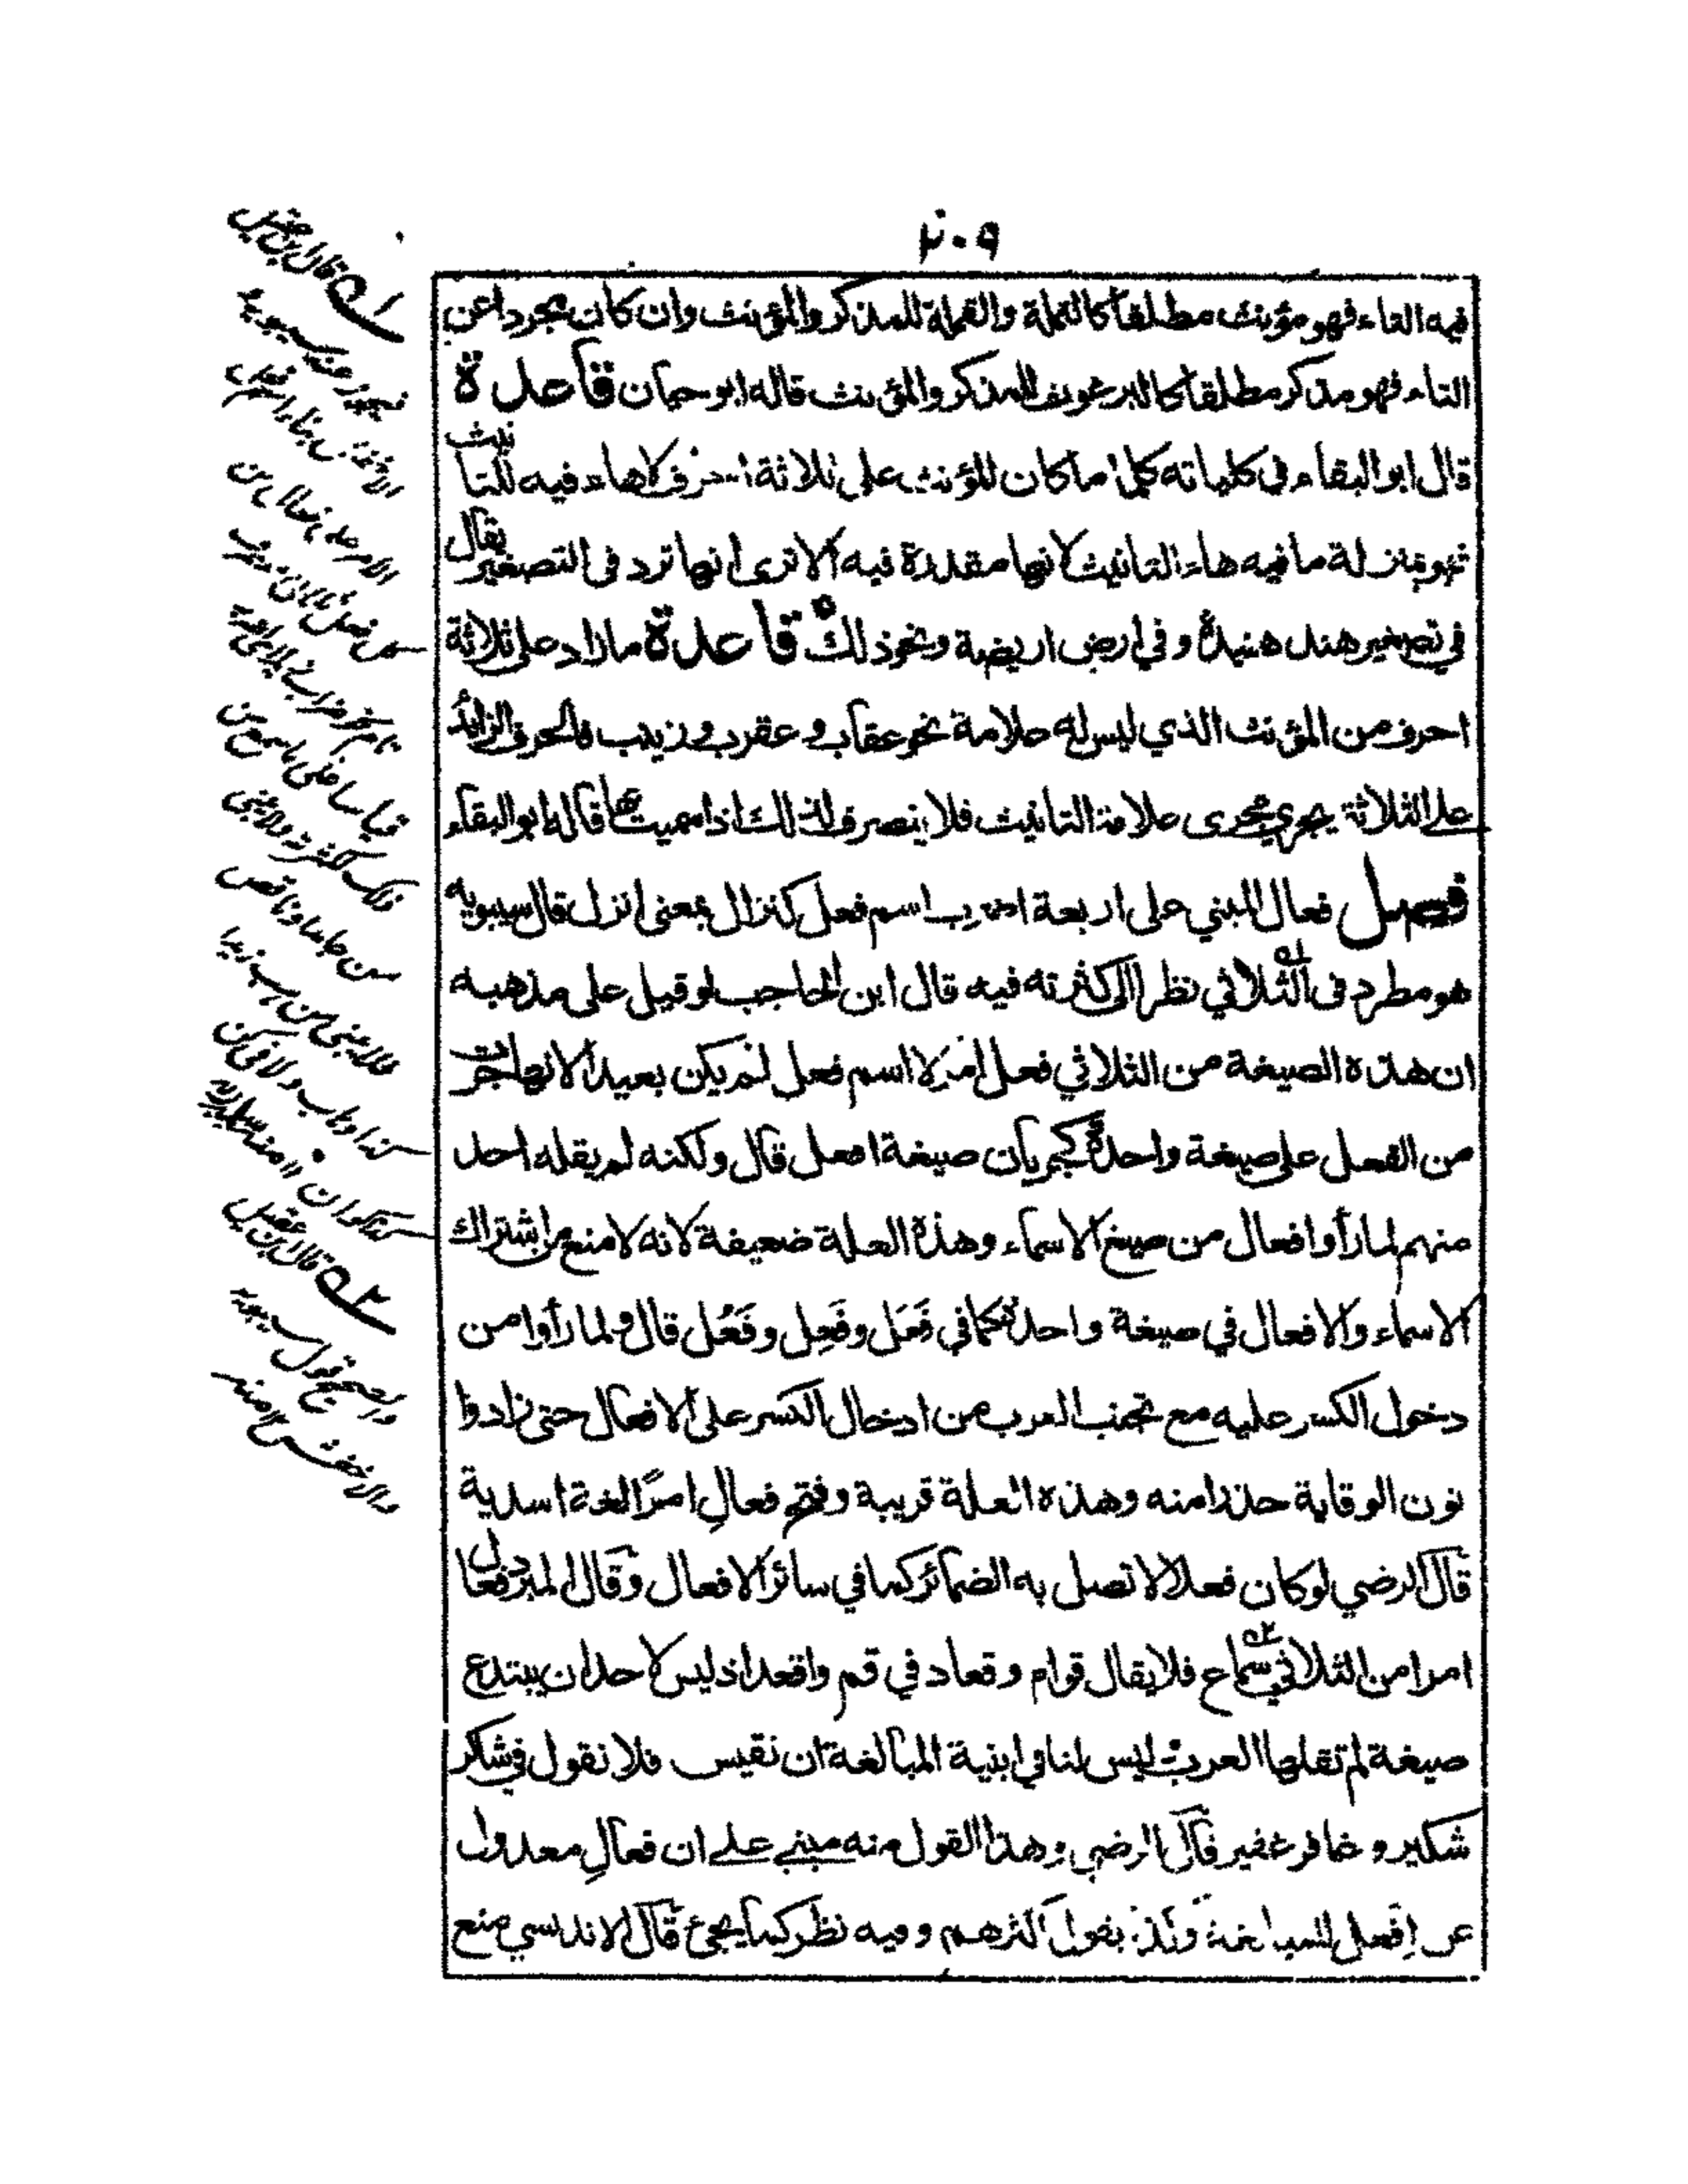 ٢٠٩
فيه التاء فهو مؤنث مطلقا كالنملة والقملة للمذكر والمؤنث وان كان مجردا عن
التاء فهو مذكر مطلقا كالبرغوث للمذكر والمؤنث قاله ابو حيان قاعدة
قال ابو البقاء في كلياته كل ما كان للمؤنث على ثلاثة احرف لا هاء فيه للتانيث
فهو بمنزلة ما فيه هاء التانيث لانها مقدرة فيه الا ترى انها ترد في التصغير يقال
في تصغير هند هنيدة وفي ارض اريضة ونحو ذلك قاعدة ما زاد على ثلاثة
احرف من المؤنث الذي ليس له علامة نحو عقاب وعقرب وزينب فالحرف الزائد
على الثلاثة يجري مجرى علامة التانيث فلا ينصرف لذلك اذا سميت بها قاله ابو البقاء
فصل فعال المبني على اربعة اضرب اسم فعل كنزال بمعنى انزل قال سيبويه
هو مطرد في الثلاثي نظرا الى كثرته فيه قال ابن الحاجب لو قيل على مذهبه
ان هذه الصيغة من الثلاثي فعل امر لا اسم فعل لم يكن بعيدا لانها جرت
من الفعل على صيغة واحدة كجريان صيغة افعل قال ولكنه لم يقله احد
منهم لما رأوا فعال من صيغ الاسماء وهذه العلة ضعيفة لانه لا منع من اشتراك
الاسماء والافعال في صيغة واحدة كما في فَعَل وفَعِل وفَعُل قال ولما رأوا من
دخول الكسر عليه مع تجنب العرب من ادخال الكسر على الافعال حتى زادوا
نون الوقاية حذرا منه وهذه العلة قريبة وفتح فعالِ امرًا لغة اسدية
قال الرضي لو كان فعلا لاتصل به الضمائر كما في سائر الافعال وقال المبرد فعال
امرا من الثلاثي سماع فلا يقال قوام وقعاد في قم واقعد اذ ليس لاحد ان يبتدع
صيغة لم تقلها العرب ليس لنا في ابنية المبالغة ان نقيس فلا نقول في شاكر
شكير وغافر غفير قال الرضي وهذا القول منه مبني على ان فعالِ معدول
عن اِفعل للمبالغة وكذا يقول اكثرهم وفيه نظر كما يجيئ قال الاندلسي منع
قال ابن عقيل
يجوز عند سيبويه
فلا يبنى من
١٢ منه
قال ابن عقيل
والصحيح قول سيبويه
والاخفش ١٢ منه